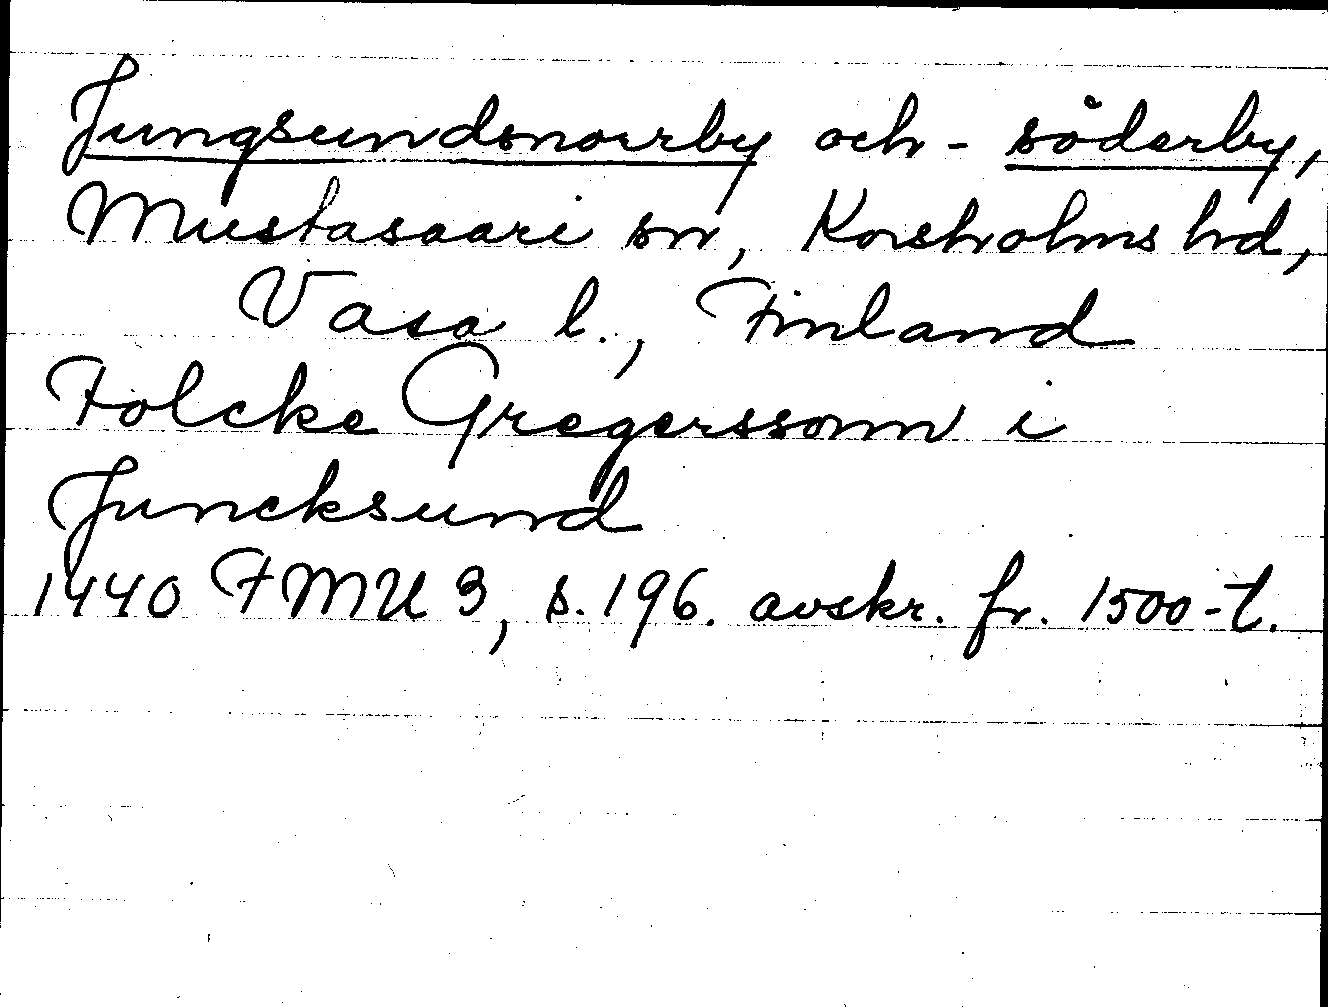 Jungsundsnorrby och - söderby,
Mustasaari sn, Korsholms hd,
Vasa l., Finland
Folcke Gregerssonn i
Juncksund
1440 FMU 3, s. 196. avskr. fr. 1500-t.